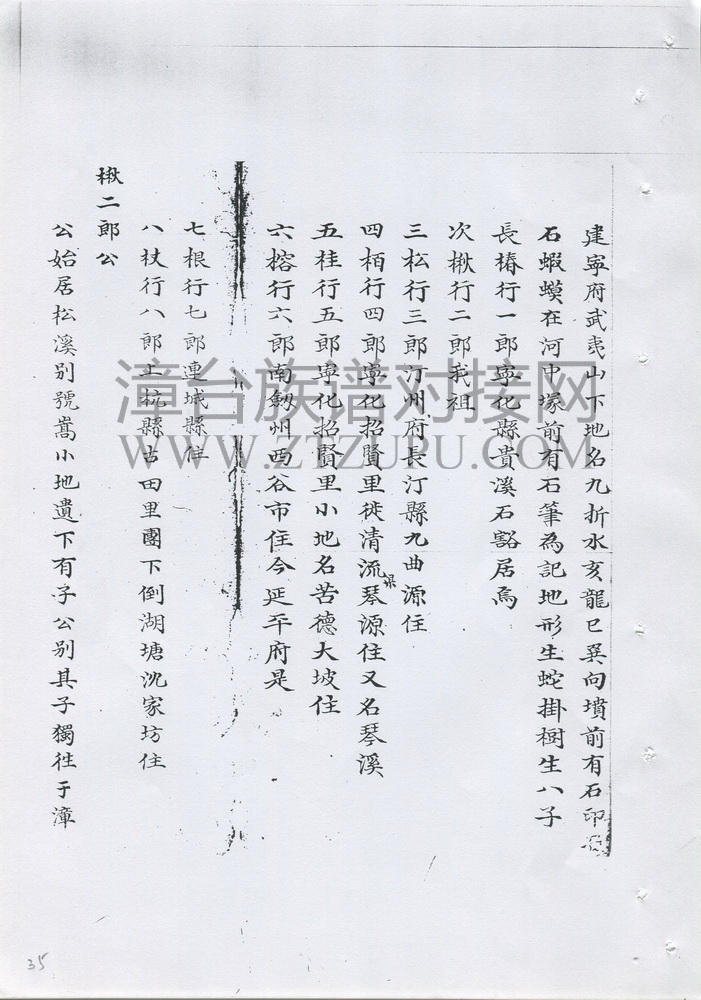 建寧府武夷山下地名九折水亥龍巳巽向墳前有石印
石蝦蟆在河中塚前有石筆為記地形生蛇掛樹生八子
長椿行一郎寧化縣貴溪石谿居焉
次楸行二郎我祖
三松行三郎汀州府長汀縣九曲源住
四栢行四郎寧化招賢里徙清流縣琴源住又名琴溪
五桂行五郎寧化招賢里小地名苦德大坡住
六榕行六郎南劔州西谷市住今延平府是
七根行七郎連城縣住
八杖行八郎上杭縣古田里團下倒湖塘沈家坊住
楸二郎公
公始居松溪別號嵩小地遺下有子公別其子獨往于漳
漳台族谱对接网
WWW.ZTZUPU.COM
35